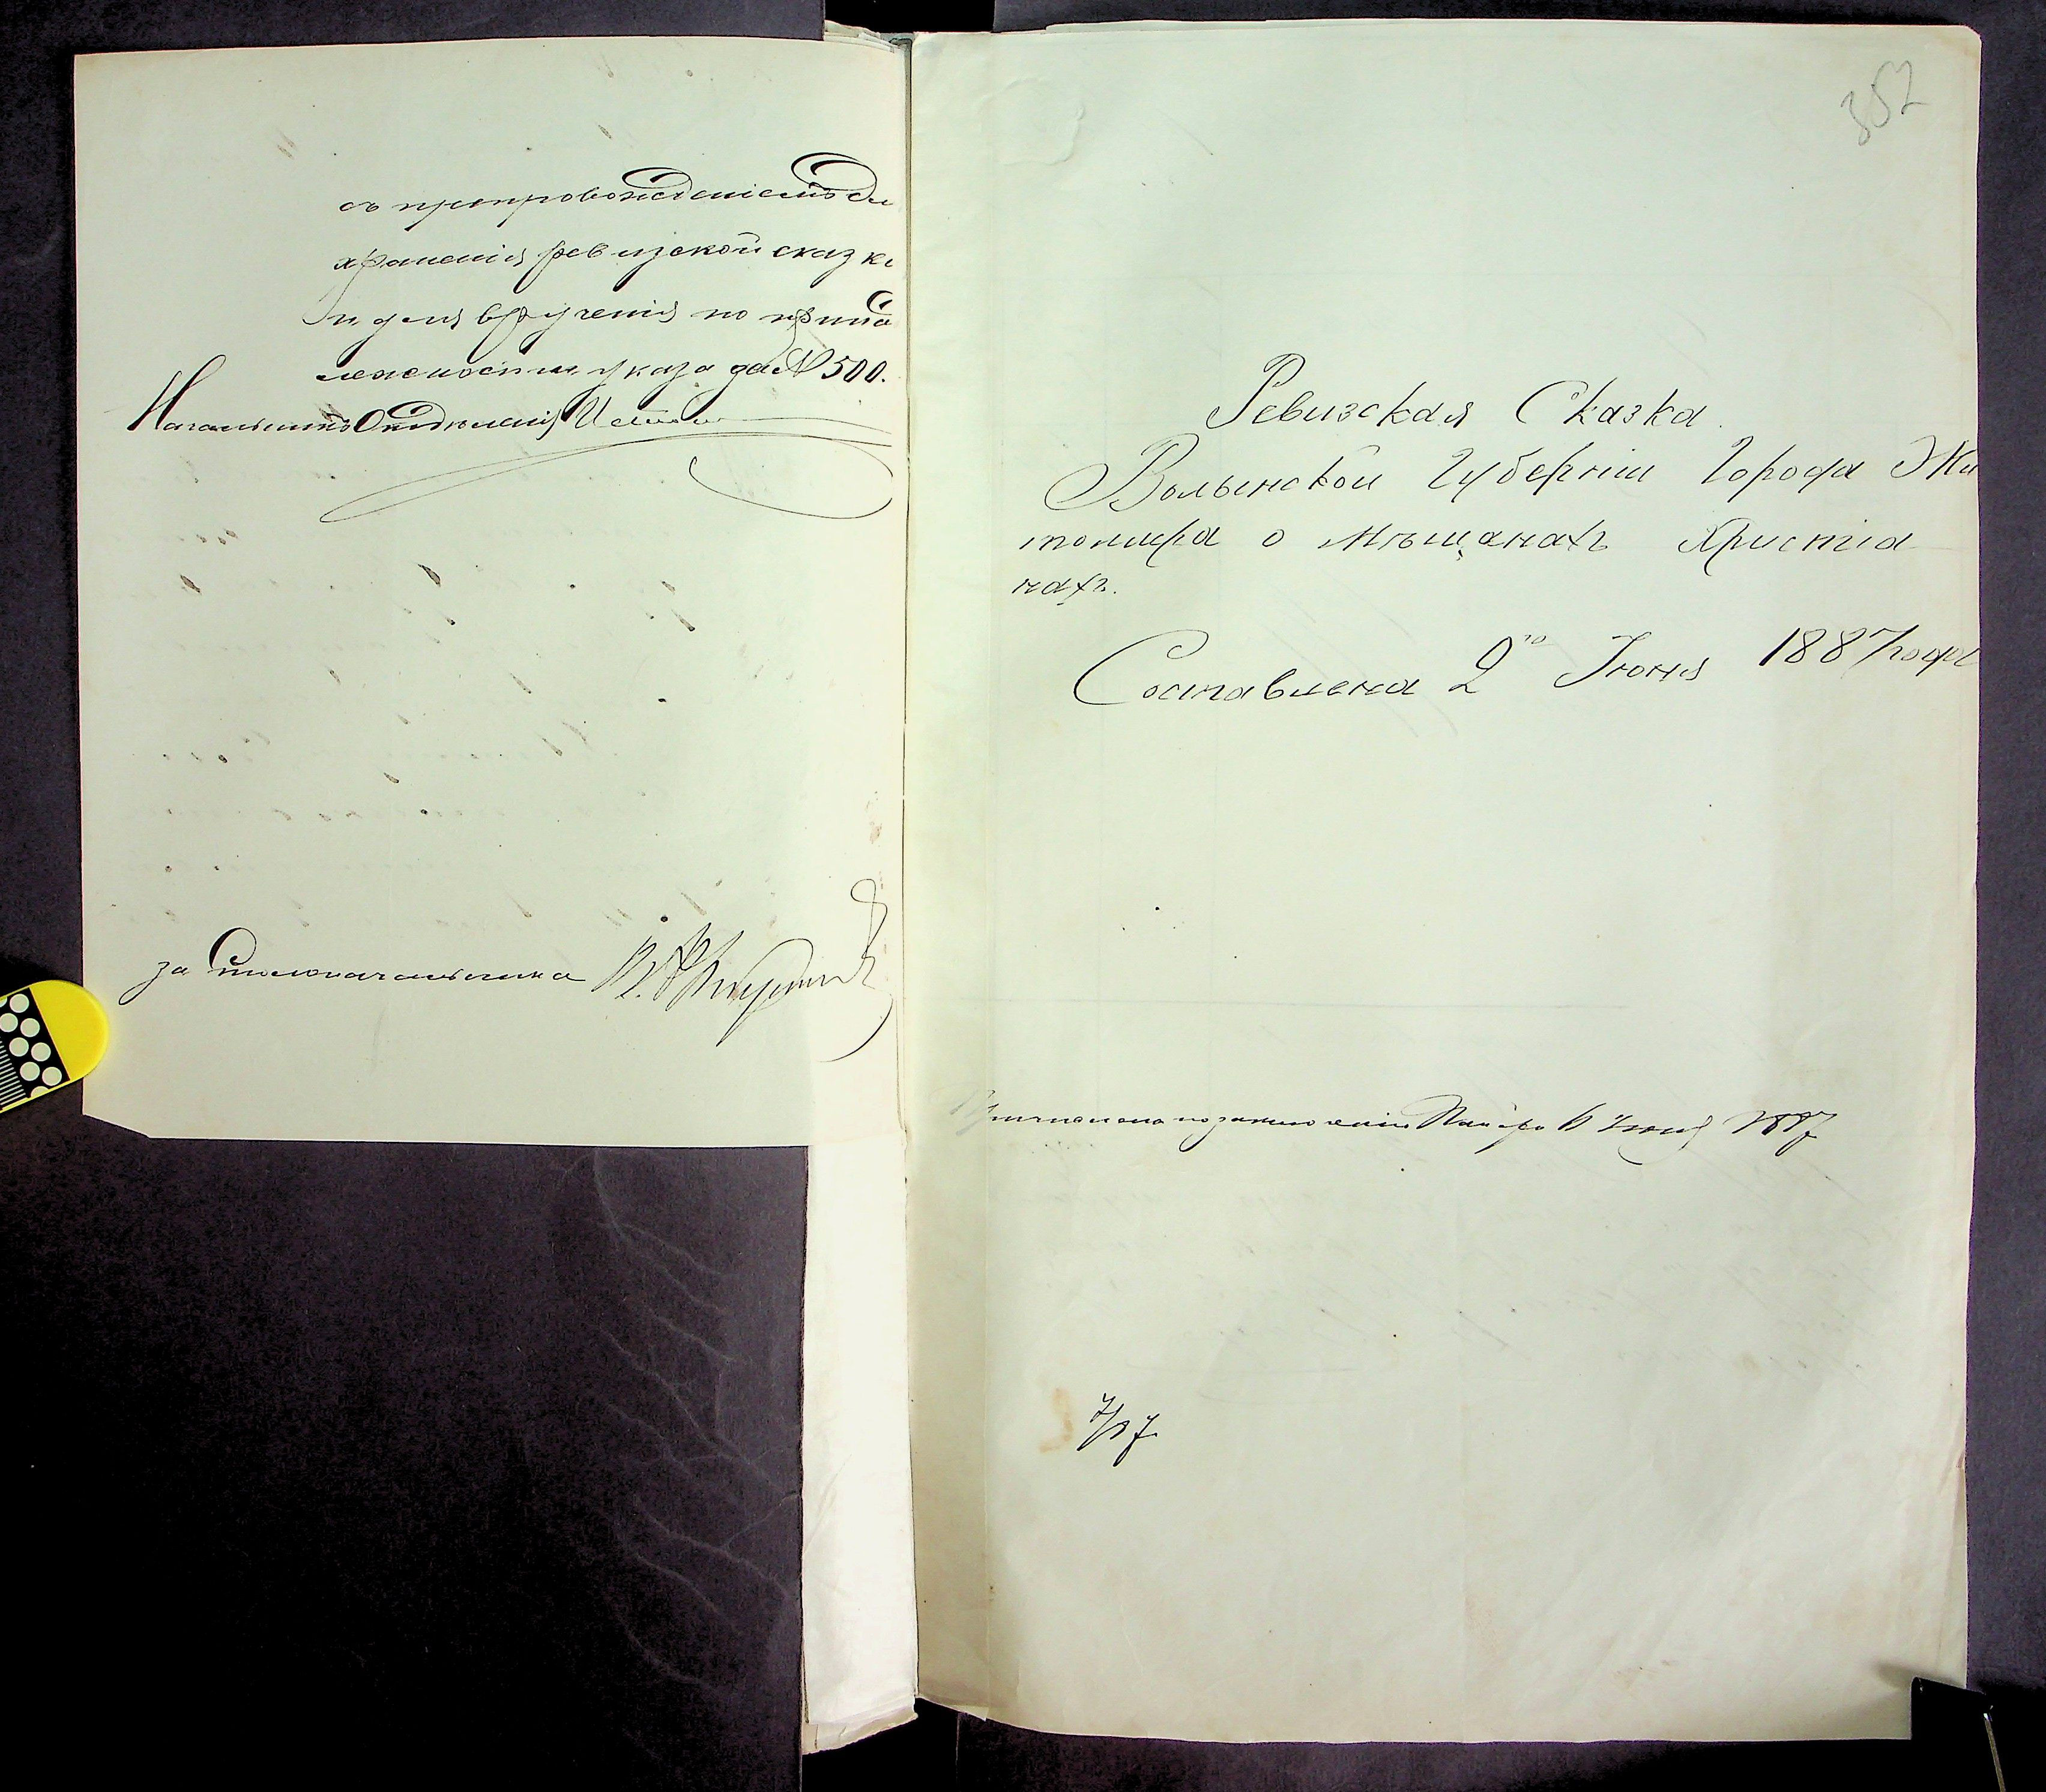 съ препровожденіемъ для
храненія ревизской сказки
и для вручения по принад
лежности указа за № 500.
Начальникъ Отдѣленія
за Столоначальника
352
Ревизская Сказка.
Волынской Губерніи Города Жи
томира о мѣщанахъ Христіа
нахъ.
Составлена 2го Іюня 1887 года
6 Іюня 1887